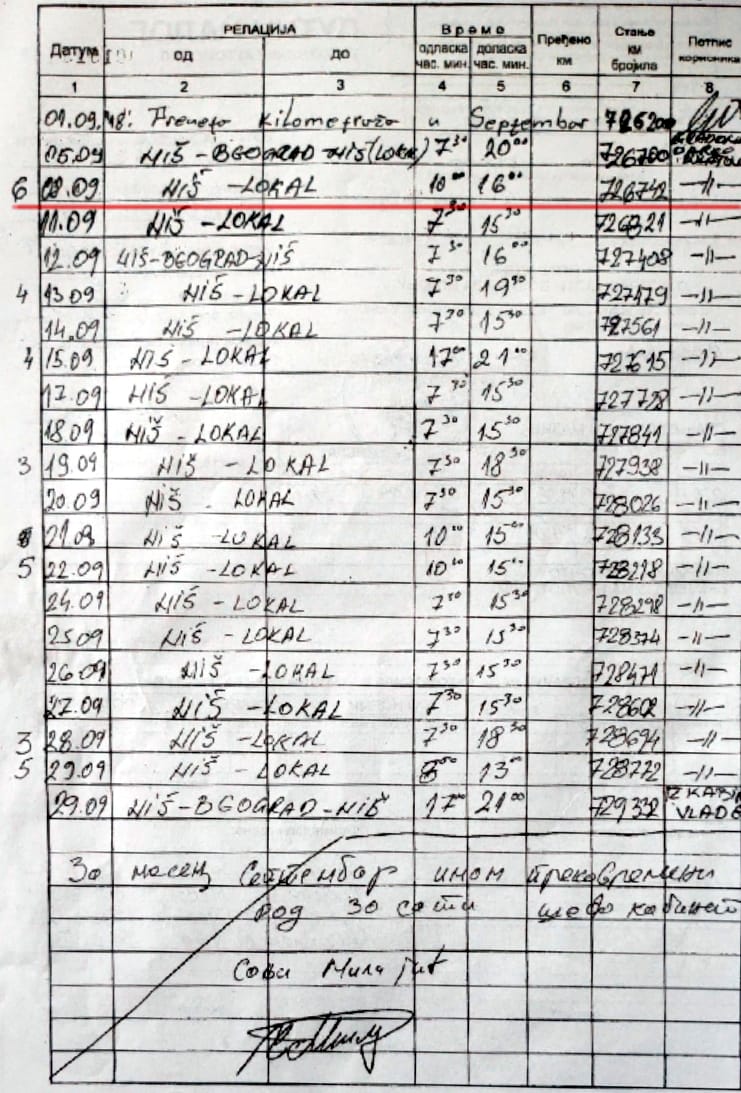 РЕЛАЦИЈА Време Пређено Стање Потпис
Датум од до одласка доласка км км корисника
час. мин. час. мин. бројила
1 2 3 4 5 6 7 8
01.09. Preneta kilometraža u Septembar 726200
05.09 NIŠ - BEOGRAD - NIŠ (LOKAL) 7³⁰ 20⁰⁰ 726700
6 08.09 NIŠ - LOKAL 10⁰⁰ 16⁰⁰ 726742 -11-
11.09 NIŠ - LOKAL 7³⁰ 15³⁰ 726821 -11-
12.09 NIŠ-BEOGRAD-NIŠ 7³⁰ 16⁰⁰ 727408 -11-
4 13.09 NIŠ - LOKAL 7³⁰ 19³⁰ 727479 -11-
14.09 NIŠ - LOKAL 7³⁰ 15³⁰ 727561 -11-
4 15.09 NIŠ - LOKAL 17⁰⁰ 21⁰⁰ 727615 -11-
17.09 NIŠ - LOKAL 7³⁰ 15³⁰ 727728 -11-
18.09 NIŠ - LOKAL 7³⁰ 15³⁰ 727841 -11-
3 19.09 NIŠ - LOKAL 7³⁰ 18³⁰ 727938 -11-
20.09 NIŠ LOKAL 7³⁰ 15³⁰ 728026 -11-
21.09 NIŠ - LOKAL 10⁰⁰ 15⁰⁰ 728133 -11-
5 22.09 NIŠ - LOKAL 10⁰⁰ 15⁰⁰ 728218 -11-
24.09 NIŠ - LOKAL 7³⁰ 15³⁰ 728298 -11-
25.09 NIŠ - LOKAL 7³⁰ 15³⁰ 728374 -11-
26.09 NIŠ - LOKAL 7³⁰ 15³⁰ 728471 -11-
27.09 NIŠ - LOKAL 7³⁰ 15³⁰ 728602 -11-
3 28.09 NIŠ - LOKAL 7³⁰ 18³⁰ 728694 -11-
5 29.09 NIŠ - LOKAL 8⁰⁰ 13⁰⁰ 728772 -11-
29.09 NIŠ - BEOGRAD - NIŠ 17⁰⁰ 21⁰⁰ 729332 VLADE
За месец Септембар имам прековремени
рад 30 сати шефо кабинет